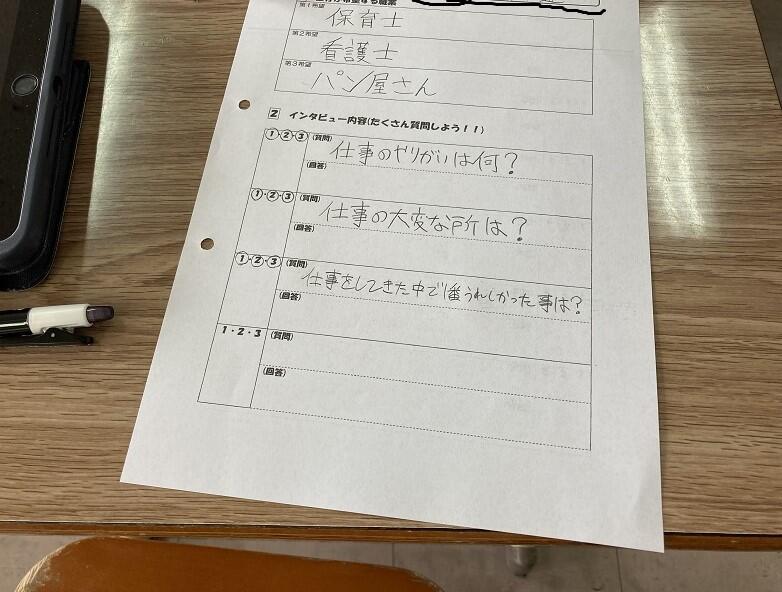 第1希望
保育士
第2希望
看護士
第3希望
パン屋さん
2 インタビュー内容(たくさん質問しよう！！)
①・②・③ (質問) 仕事のやりがいは何？
(回答)
①・②・③ (質問) 仕事の大変な所は？
(回答)
①・②・③ (質問) 仕事をしてきた中で1番うれしかった事は？
(回答)
1・2・3 (質問)
(回答)